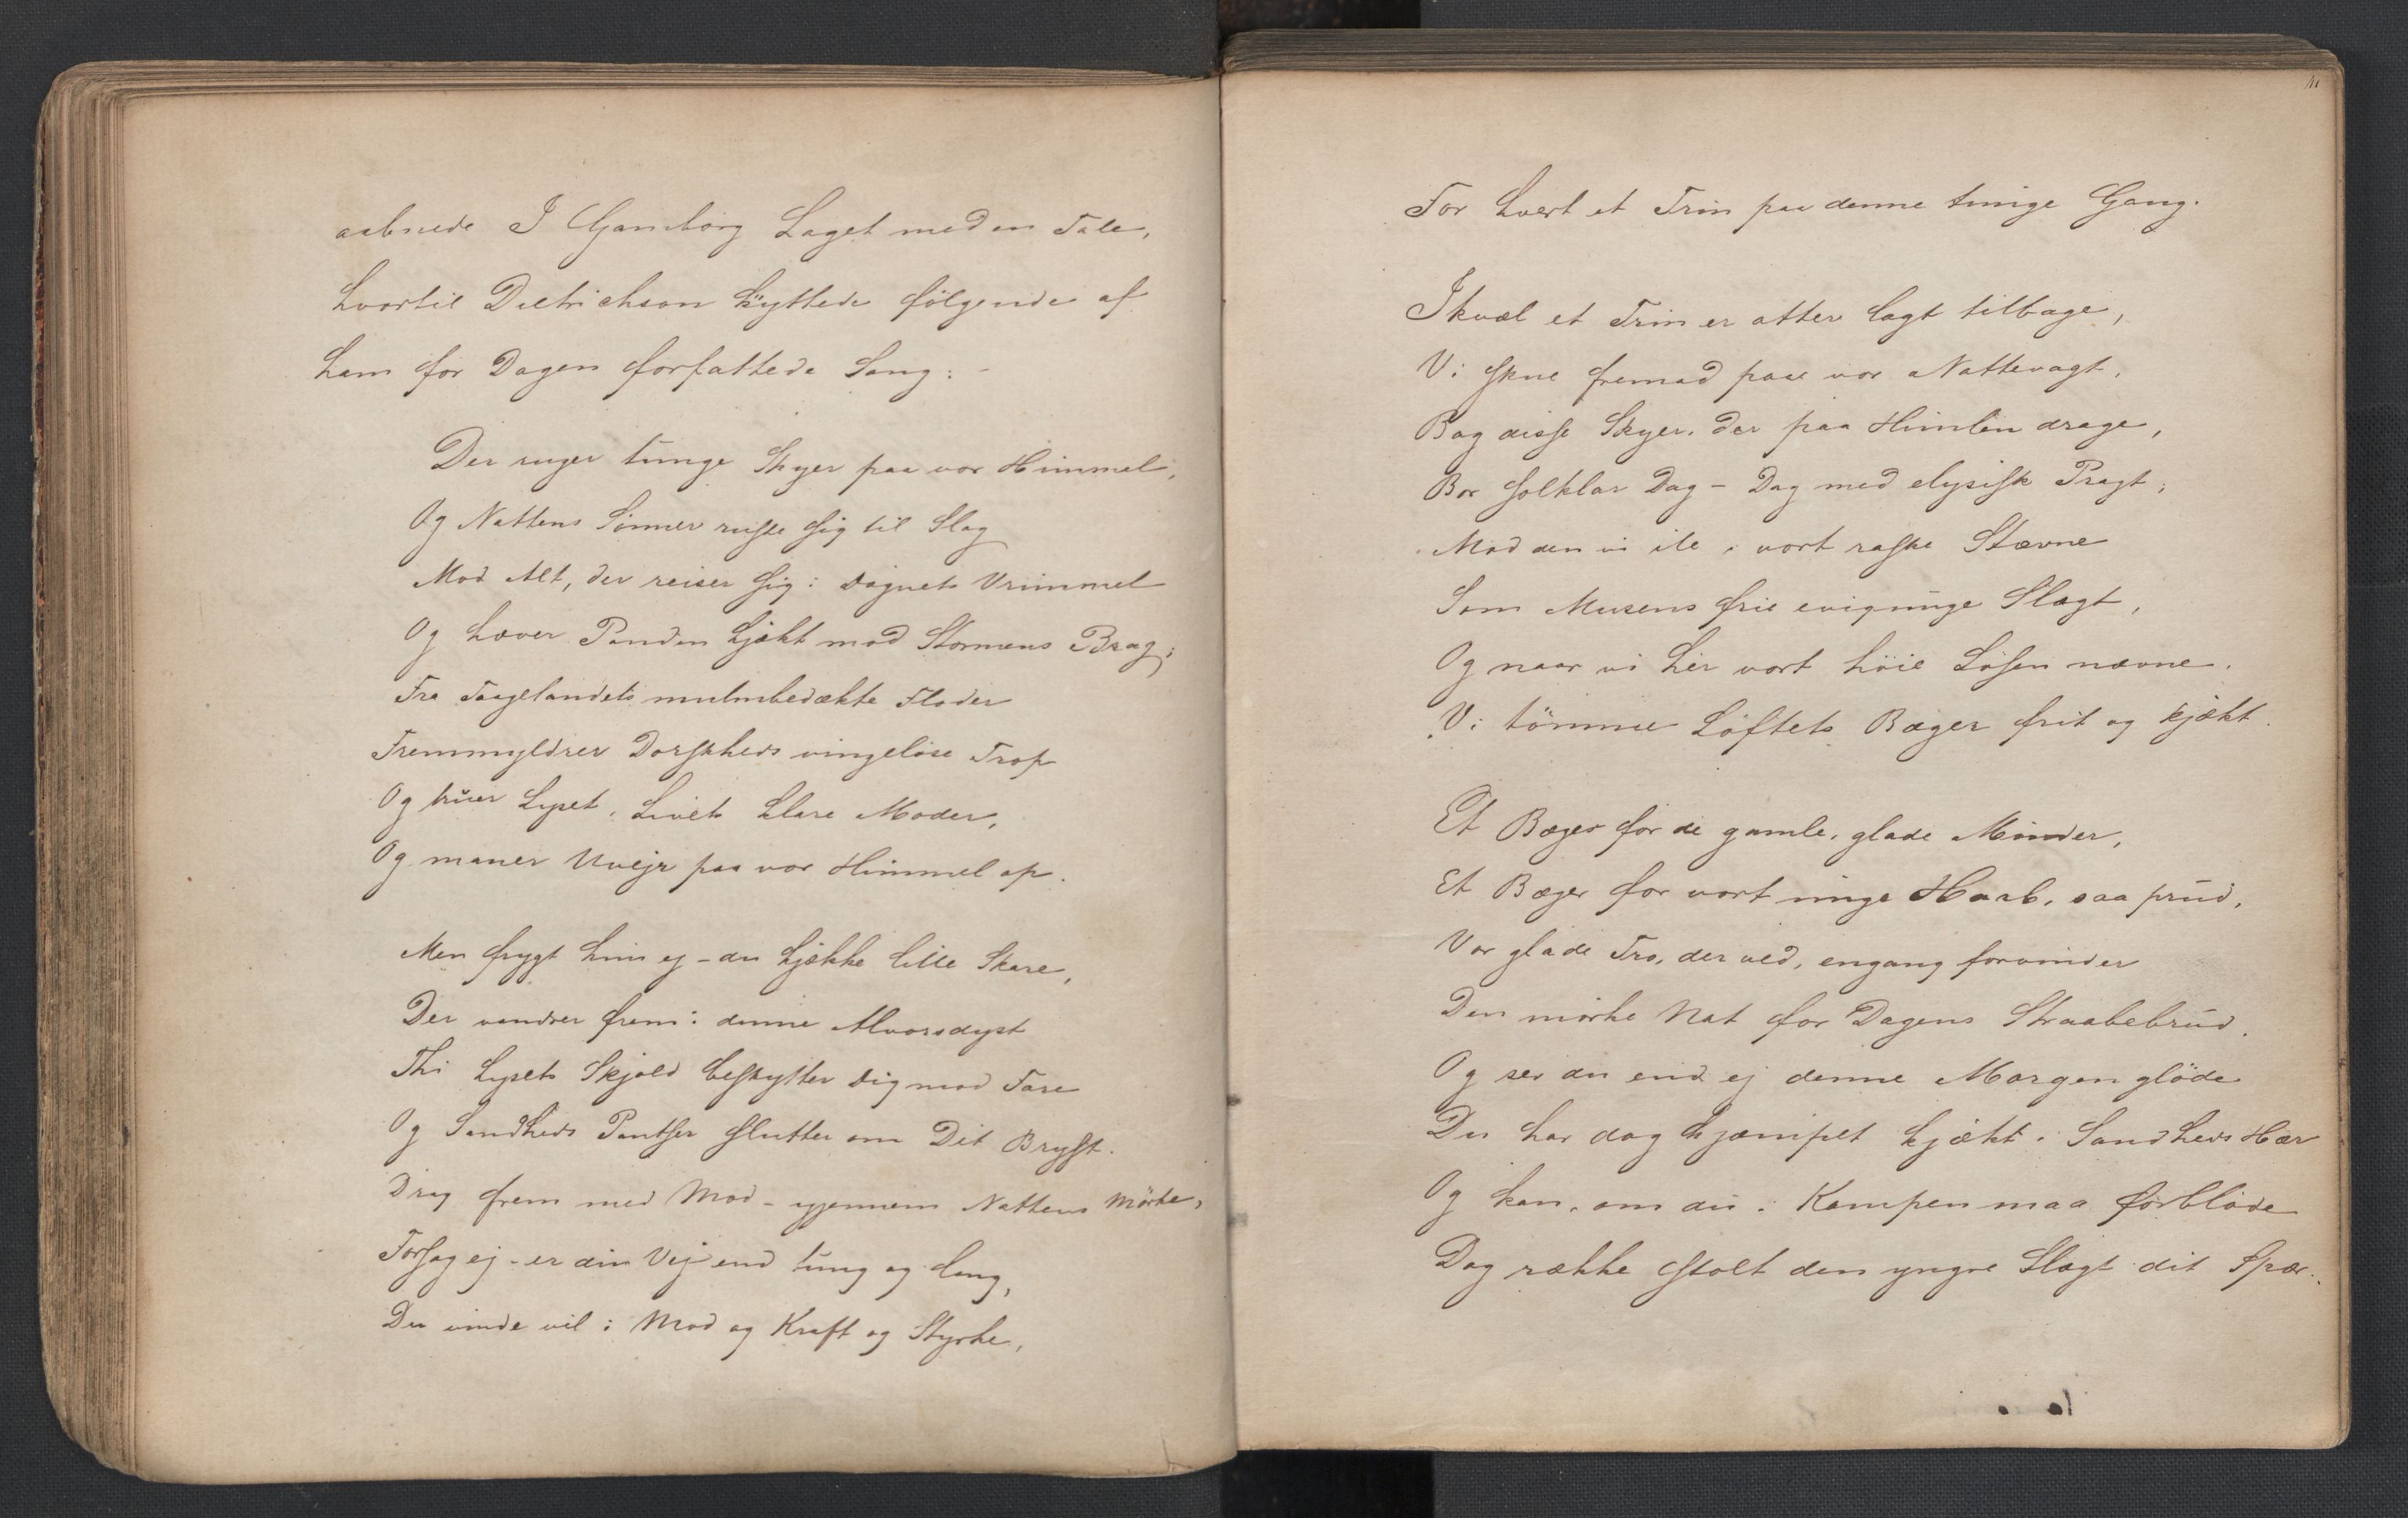 aabnede J Gamborg Laget med en Tale,
hvortil Dietrichson knyttede følgende af
ham for Dagen forfattede Sang: -
Der ruger tunge Skyer paa vor Himmel,
Og Nattens Sønner ruste sig til Slag
Mod Alt, der reiser sig i Døgnets Vrimmel
Og hæver Panden kjækt mod Stormens Brag;
Fra Taagelandets mulmbedækte Floder
Fremmyldrer Dorskheds vingeløse Trop
Og truer Lyset, Livets klare Moder,
Og maner Uvejr paa vor Himmel op.
Men frygt kun ej - du kjække lille Skare,
Der vandrer frem i denne Alvorsdyst
Thi Lysets Skjold beskytter dig mod Fare
Og Sandheds Pantser slutter om Dit Bryst.
Drag frem med Mod - igjennem Nattens Mørke,
Forsag ej - er din Vej end tung og lang,
Du vinde vil i Mod og Kraft og Styrke,
For hvert et Trin paa denne tunge Gang.
Ikvæl et Trin er atter lagt tilbage,
Vi skue fremad paa vor Nattevagt,
Bag disse Skyer, der paa Himlen drage,
Bor solklar Dag - Dag med elysisk Pragt;
Mod den vi ile i vort raske Stævne
Som Musens frie evigunge Slægt,
Og naar vi her vort høie Løsen nævne.
Vi tømme Løftets Bæger frit og kjækt.
Et Bæger for de gamle, glade Minder,
Et Bæger for vort unge Haab, saa prud,
Vor glade Tro, der ved, engang forvinder
Den mørke Nat for Dagens Straalebrud.
Og ser du end ej denne Morgengløde
Du har dog kjæmpet kjækt i Sandheds Hær
Og kan, om du i Kampen maa forbløde
Dog række stolt den yngre Slægt dit Spær.